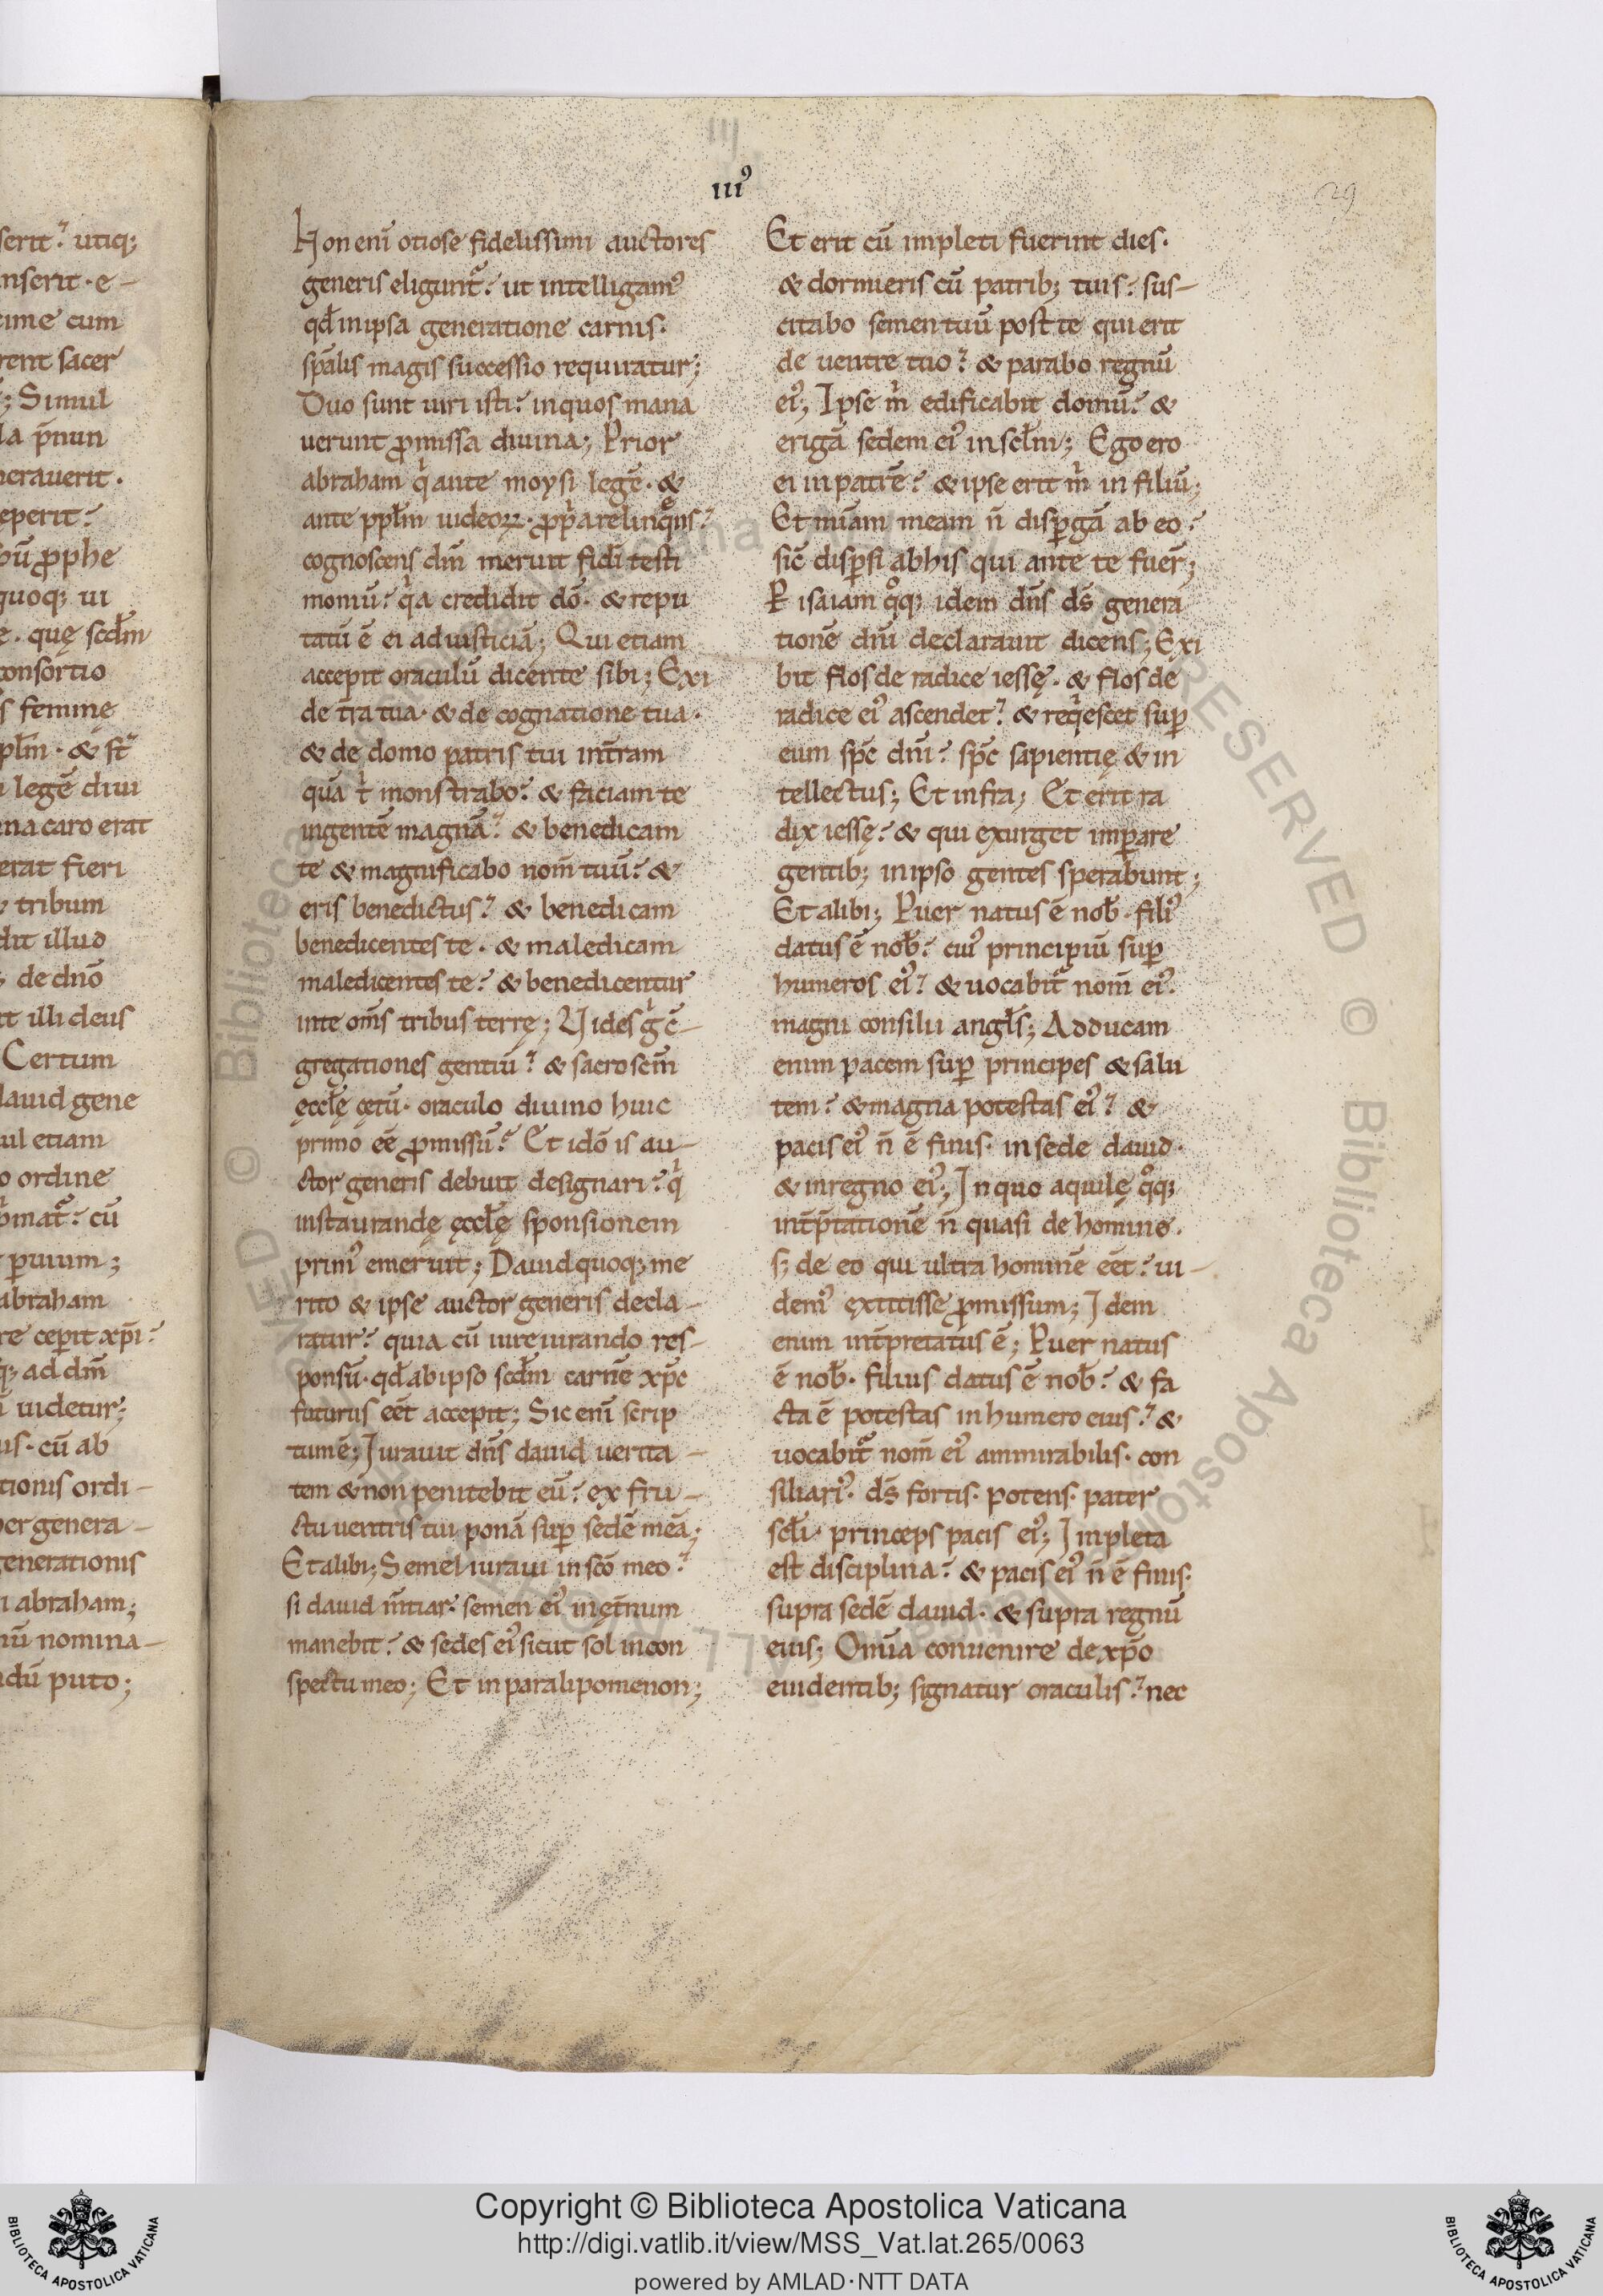 serit? utiq;
nserit · e-
cime cum
rent sacer
; Simul
la p̄nun
nerauerit .
eperit?
bū ꝓphe
quoq; ui
ę . quę scd̄m
consortio
s femine
pl̄m · & st᷑
legē diui
ma caro erat
erat fieri
tribum
dit illud
de dn̄o
it illi deus
Certum
dauid gene
ul etiam
o ordine
mat᷑? cū
ꝑuium;
abraham
re cepit xp̄i?
q; ad dm̄
uidetur;
us · cū ab
tionis ordi-
per genera-
generationis
i abraham;
nū nomina-
dū puto;
iii⁹
29
Non eni̅ otiose fidelissimi auctores
generis eligunt᷑? ut intelligam⁹
qd̄ in ipsa generatione carnis·
sp̄alis magis successio requiratur;
Duo sunt uiri isti? in quos mana
uerunt ꝓmissa diuina; Prior
abraham qͥ ante moysi legē · &
ante ppl̄m iudeoꝝ · ꝓpͥa relinqͦns?
cognoscens dm̄ meruit fidi̅ testi
moniū? qͥa credidit dō · & repu
tatū ē ei ad iusticiā; Qui etiam
accepit oraculū dicente sibi; Exi
de t̄ra tua · & de cognatione tua ·
& de domo patris tui in t̄ram
quā tͥ monstrabo? & faciam te
in gentē magnā? & benedicam
te & magnificabo nom̄ tuū? &
eris benedictus? & benedicam
benedicentes te · & maledicam
maledicentes te? & benedicentur
in te om̄s tribus terrę; Vides gͥ ē-
gregationes gentiū? & sacrosc̄m
ęccl̄ę cętū · oraculo diuino huic
primo eē ꝓmissū? Et idō is au-
ctor generis debuit designari? qͥ
instaurandę ęccl̄ę sponsionem
prim⁹ emeruit; Dauid quoq; me
rito & ipse auctor generis decla-
ratur? quia cū iureiurando res-
ponsū · qd̄ ab ipso scd̄m carnē xp̄c
futurus eēt accepit; Sic eni̅ scrip
tum ē; Iurauit dn̄s dauid uerita-
tem & non penitebit eū? ex fru-
ctu uentris tui ponā sup̱ sedē meā;
Et alibi; Semel iuraui in sc̄o meo?
si dauid m̄tiar· semen ei⁹ in ęt̄num
manebit? & sedes ei⁹ sicut sol in con
spectu meo; Et in paralipomenon;
Et erit cū impleti fuerint dies·
& dormieris cū patrib; tuis? sus-
citabo semen tuū post te qui erit
de uentre tuo? & parabo regnū
ei⁹; Ipse mͥ edificabit domū? &
erigā sedem ei⁹ in scl̄m; Ego ero
ei in patrē? & ipse erit mͥ in filiū;
Et mi̅am meam n̄ disꝑgā ab eo?
sic̄ disꝑsi ab his qui ante te fuer̄;
P isaiam qͦq; idem dn̄s dš genera
tionē dn̄i declarauit dicens; Exi
bit flos de radice iessę · & flos de
radice ei⁹ ascendet? & reqͥescet sup̱
eum sp̄c dn̄i? sp̄c sapientię & in
tellectus; Et infra; Et erit ra
dix iessę? & qui exurget imꝑare
gentib; in ipso gentes sperabunt;
Et alibi; Puer natus ē nob̄ · fili⁹
datus ē nob̄? cui⁹ principiū sup̱
humeros ei⁹? & uocabit᷑ nom̄ ei⁹?
magni consilii angl̄s; Adducam
enim pacem sup̱ principes & salu
tem? & magna potestas ei⁹? &
pacis ei⁹ n̄ ē finis · in sede dauid ·
& in regno ei⁹; In quo aquilę qͦq;
int̄p̄tationē n̄ quasi de homine ·
s; de eo qui ultra hominē eēt? ui-
dem⁹ extitisse ꝓmissum; Idem
enim int̄pretatus ē; Puer natus
ē nob̄ · filius datus ē nob̄? & fa
cta ē potestas in humero eius? &
uocabit᷑ nom̄ ei⁹ ammirabilis · con
siliari⁹ · dš fortis · potens · pater
scl̄i · princeps pacis ei⁹; Impleta
est disciplina? & pacis ei⁹ n̄ ē finis·
supra sedē dauid · & supra regnū
eius; Omi̅a conuenire de xp̄o
euidentib; signatur oraculis? nec
Copyright © Biblioteca Apostolica Vaticana
http://digi.vatlib.it/view/MSS_Vat.lat.265/0063
powered by AMLAD·NTT DATA
BIBLIOTECA APOSTOLICA VATICANA
BIBLIOTECA APOSTOLICA VATICANA